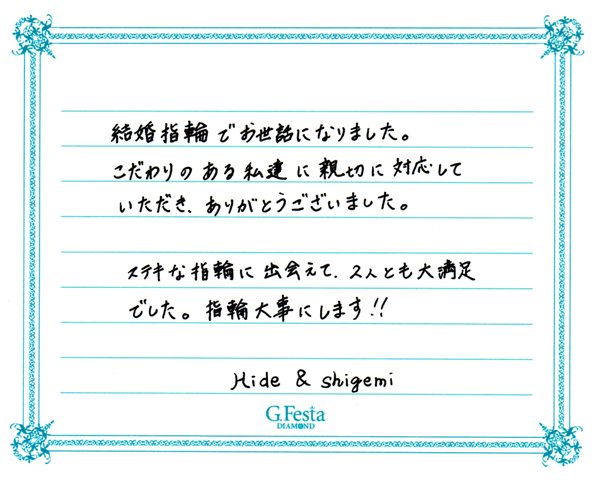 結婚指輪でお世話になりました。
こだわりのある私達に親切に対応して
いただき、ありがとうございました。
ステキな指輪に出会えて、2人とも大満足
でした。指輪大事にします!!
Hide & shigemi
G.Festa
DIAMOND